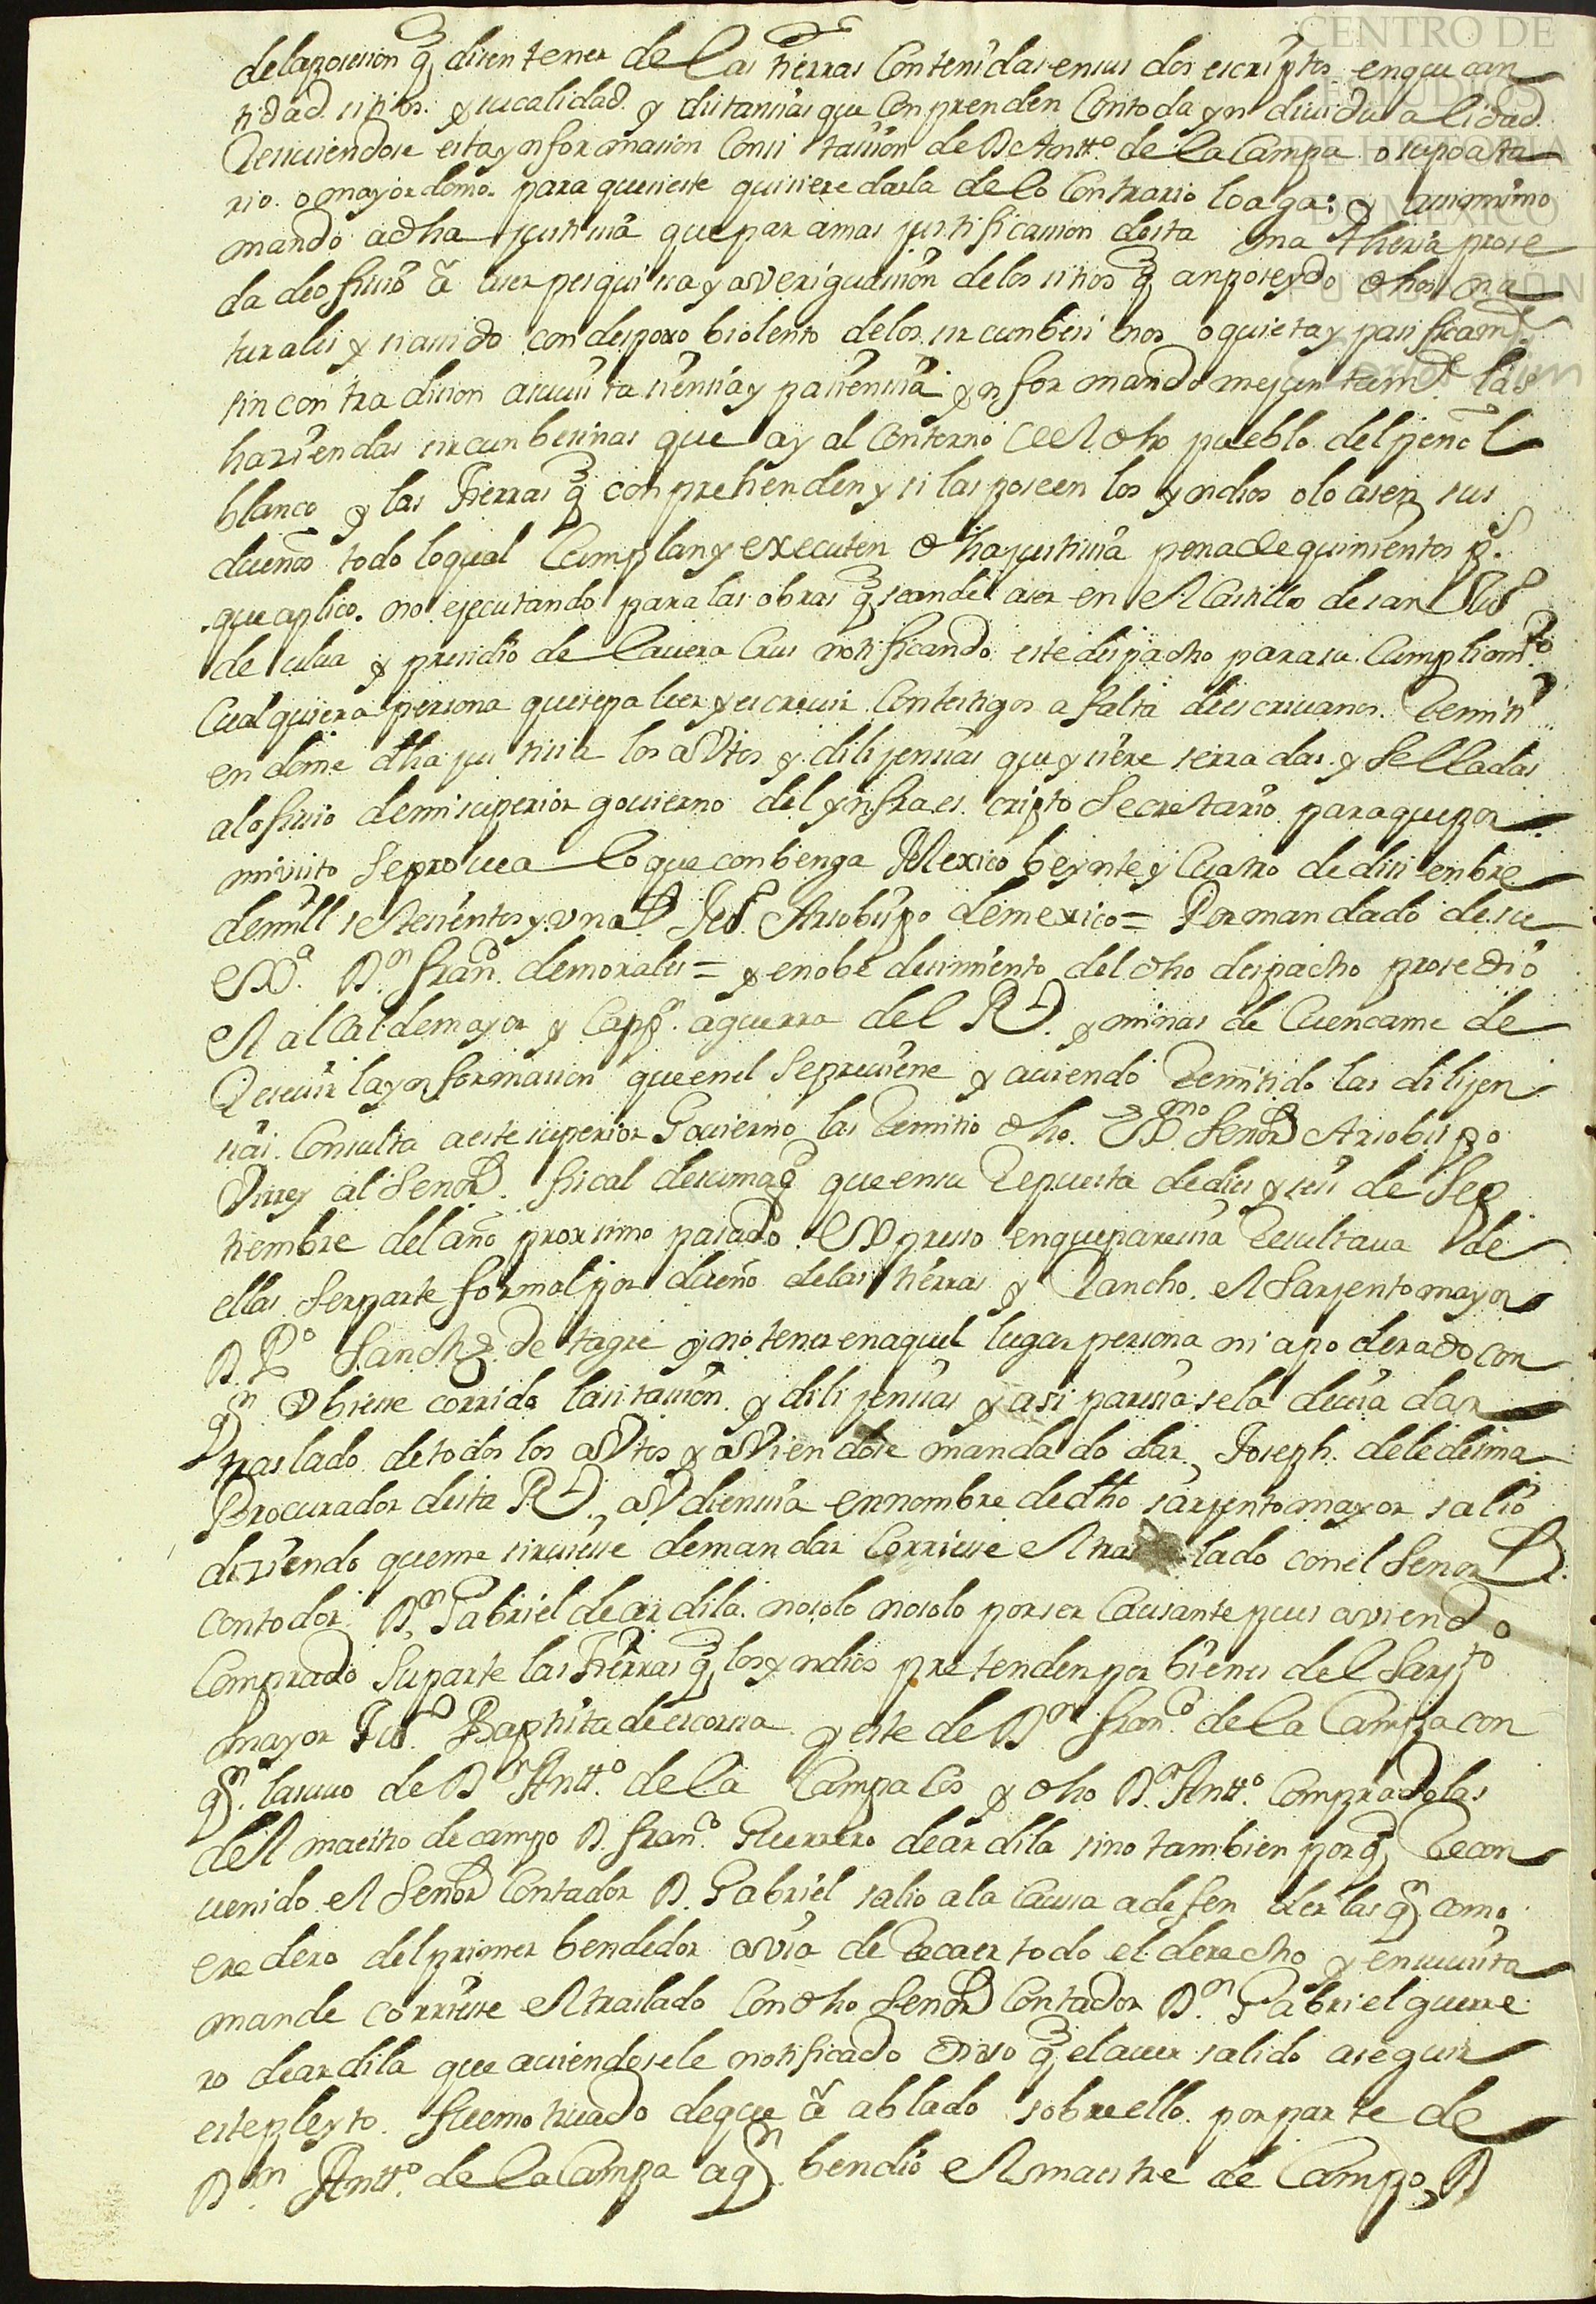 CENTRO DE
ESTUDIOS
DE HISTORIA
DE MEXICO
FUNDACIÓN
Carlos Slim
de la posesion q̃ disen tener de las tierras Contenidas en sus dos escriptos en que can
tidad sitios y su calidad y distansias que Conprenden Con toda yndividualidad
Resiuiendose esta ynformasion Consitassion de D Antt.º de la Campa o su poata
rio o mayordomo para que si este quisiere darla de lo Contrario lo aga: y asimismo
mando a dha justisia que par a mas justificassion desta matheria prose
da de ofisio â aser pesquisa y averiguasion de los sitios q̃ an poseydo dhos na
turales y si a sido con despoxo biolento de los sircunbesinos o quieta y pasificam.te
sin contradision a su vista siensia y pasiensia ynformando mejuntam.te las
hasiendas sircunbesinas que ay al Contorno del dho pueblo del peñol
blanco y las Tierras q̃ conprehenden y si las poseen los yndios o lo asen sus
dueños todo lo qual Cumplan y executen dha justisia pena de quinientos p.s
que aplico no ejecutando para las obras q̃ se an de aser en el Castillo de san Ju.º
de ulua y presidio de la uera Crus notificando este despacho para su Cumplim.to
Cualquiera persona que sepa leer y escreuir Con testigos a falta de escriuanos Remiti
endome dha justisia los aVtos y dilijensias que ysiere serradas y Selladas
al ofisio de mi superior gouierno del ynfraescripto Secretario para que por
mi visto Se prouea lo que conbenga Mexico beynte y Cuatro de disiembre
de mill setesientos y uno Ju.º Arsobispo de mexico = Por mandado de su
Ex.ª D.n Fran.co de morales = y en obedesimiento del dho despacho prosedio
el alcalde mayor y Capp.n a guerra del R.l y minas de Cuencame de
Reseuir la ynformasion que en el Se preuiene y auiendo Remitido las dilijen
sias Consulta a este superior Gouierno las Remitio dho Ex.mo Señor Arsobispo
Virrey al Señor fiscal de su mag.d que en su Repuesta de dies y seis de Sep
tiembre del año proximo pasado Expreso en que paresia Resultaua de
ellas Ser parte formal por dueño de las tierras y Rancho el Sarjento mayor
D. P.º Sanches de tagle y no tener en aquel lugar persona ni apoderado con
q.n Vbiese corrido la sitasion y dilijensias y asi paresia se la deuia dar
traslado de todos los aVtos y aViendose mandado dar, Joseph de ledesma
Procurador desta R.l aVdiensia en nombre de dho sarjento mayor salio
disiendo que me siruiese de mandar Corriese el tras lado con el Señor
contador D.n Gabriel de ardila no solo no solo por ser Causante pues aviendo
Comprado Su parte las Tierras q̃ los yndios pretenden por bienes del Sarj.to
mayor Ju.º Baptista de escorsa y este de D.n Fran.co de la Campa con
q.n las uuo de D.n Antt.º de la Campa Cos y dho D.n Antt.º Compradolas
del maestro de campo D. Fran.co Guerrero de ardila sino tambien por q̃ Recon
uenido el Señor Contador D. Gabriel salio a la Causa a defenderlas q.n como
eredero del primer bendedor avia de Recaer todo el derecho y en su vista
mande corriese el traslado Con dho Señor Contador D.n Gabriel guerre
ro de ardila que auiendosele notificado Dixo q̃ el auer salido a seguir
este pleyto fue motiuado de que â ablado sobre ello por parte de
D.n Antt.º de la Campa a q.n bendio el maestre de Campo, D